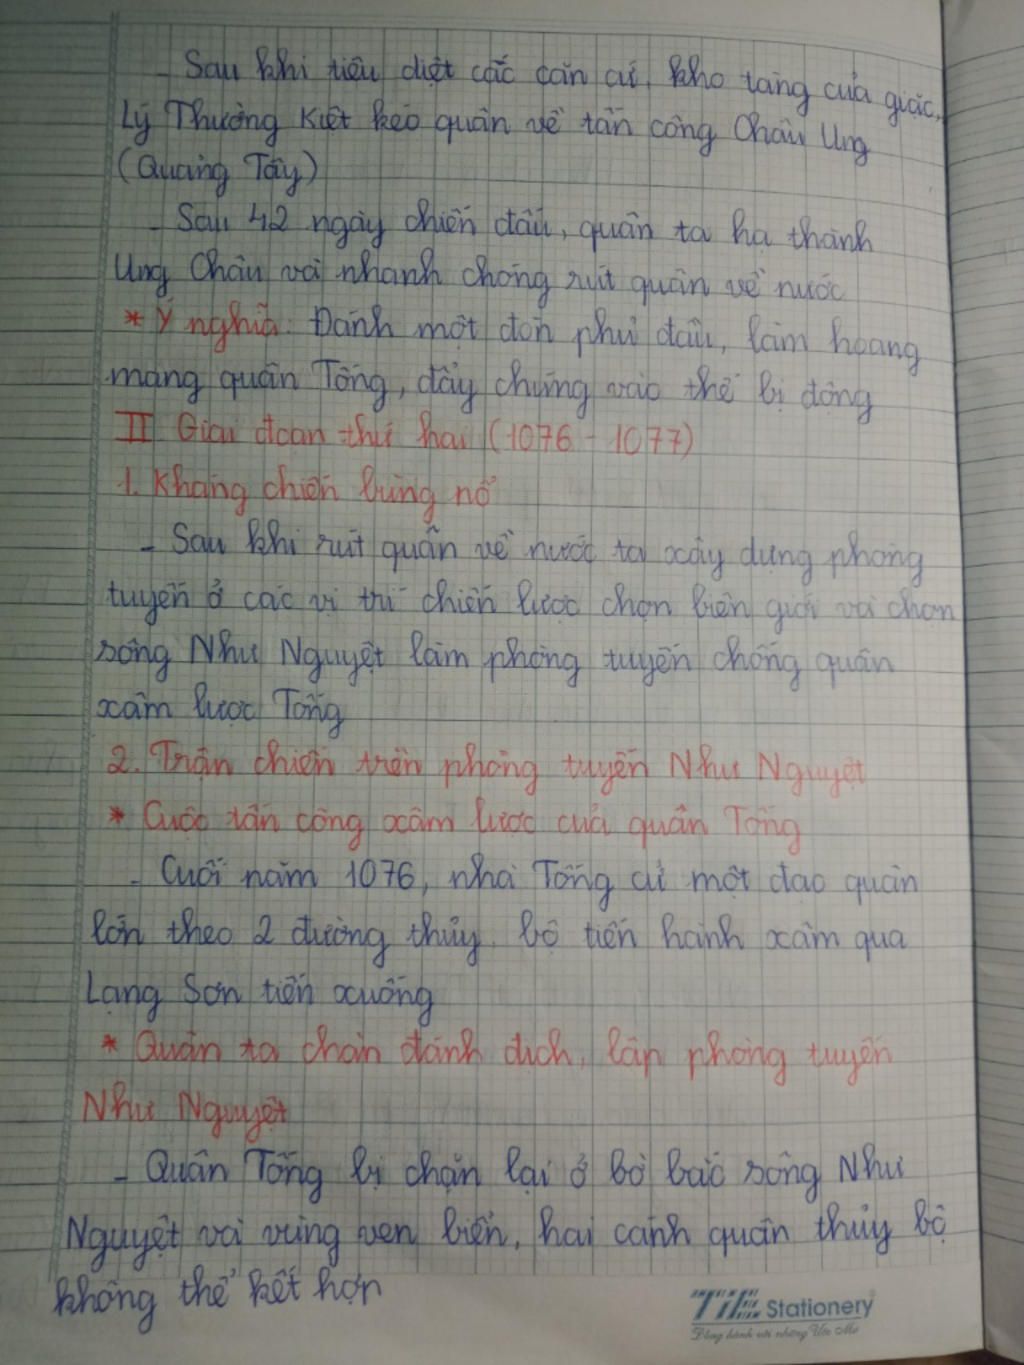 - Sau khi tiêu diệt các căn cứ, kho tàng của giặc,
Lý Thường Kiệt kéo quân về tấn công Châu Ung
(Quảng Tây)
- Sau 42 ngày chiến đấu, quân ta hạ thành
Ung Châu và nhanh chóng rút quân về nước
* Ý nghĩa: Đánh một đòn phủ đầu, làm hoang
mang quân Tống, đẩy chúng vào thế bị động
II. Giai đoạn thứ hai (1076 - 1077)
1. Kháng chiến bùng nổ
- Sau khi rút quân về nước ta xây dựng phòng
tuyến ở các vị trí chiến lược chọn biên giới và chọn
sông Như Nguyệt làm phòng tuyến chống quân
xâm lược Tống
2. Trận chiến trên phòng tuyến Như Nguyệt
* Cuộc tấn công xâm lược của quân Tống
- Cuối năm 1076, nhà Tống cử một đạo quân
lớn theo 2 đường thủy, bộ tiến hành xâm qua
Lạng Sơn tiến xuống
* Quân ta chặn đánh địch, lập phòng tuyến
Như Nguyệt
- Quân Tống bị chặn lại ở bờ bắc sông Như
Nguyệt và vùng ven biển, hai cánh quân thủy bộ
không thể kết hợp
TiE Stationery
Đồng hành với những Ước Mơ